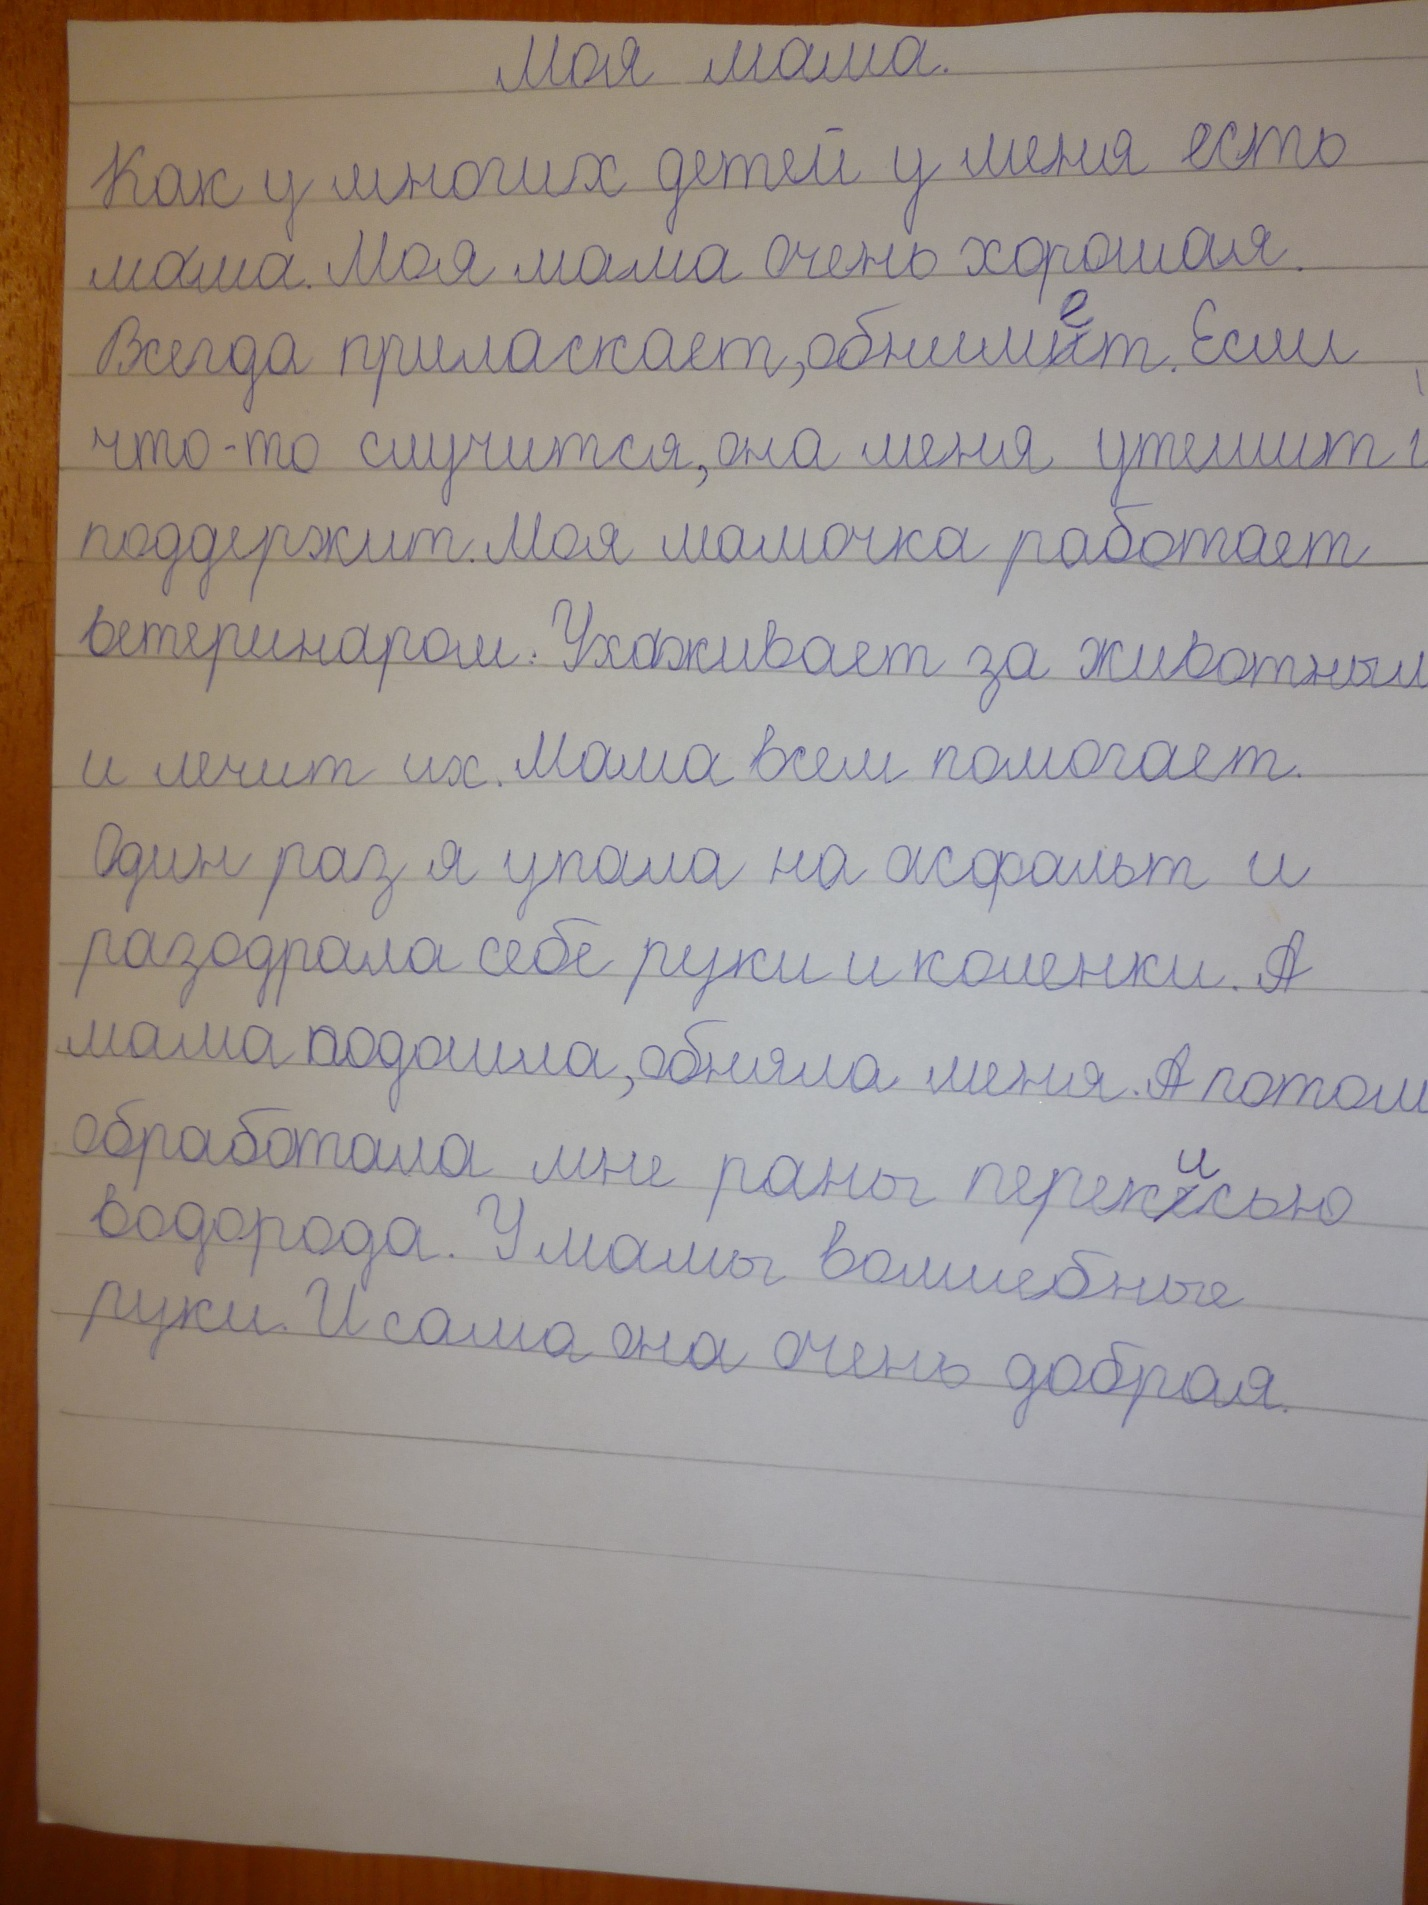 Моя мама.
Как у многих детей у меня есть
мама. Моя мама очень хорошая.
Всегда приласкает, обнимет. Если
что-то случится, она меня утешит и
поддержит. Моя мамочка работает
ветеринаром. Ухаживает за животным
и лечит их. Мама всем помогает.
Один раз я упала на асфальт и
разодрала себе руки и коленки. А
мама подошла, обняла меня. А потом
обработала мне раны перекисью
водорода. У мамы волшебные
руки. И сама она очень добрая.